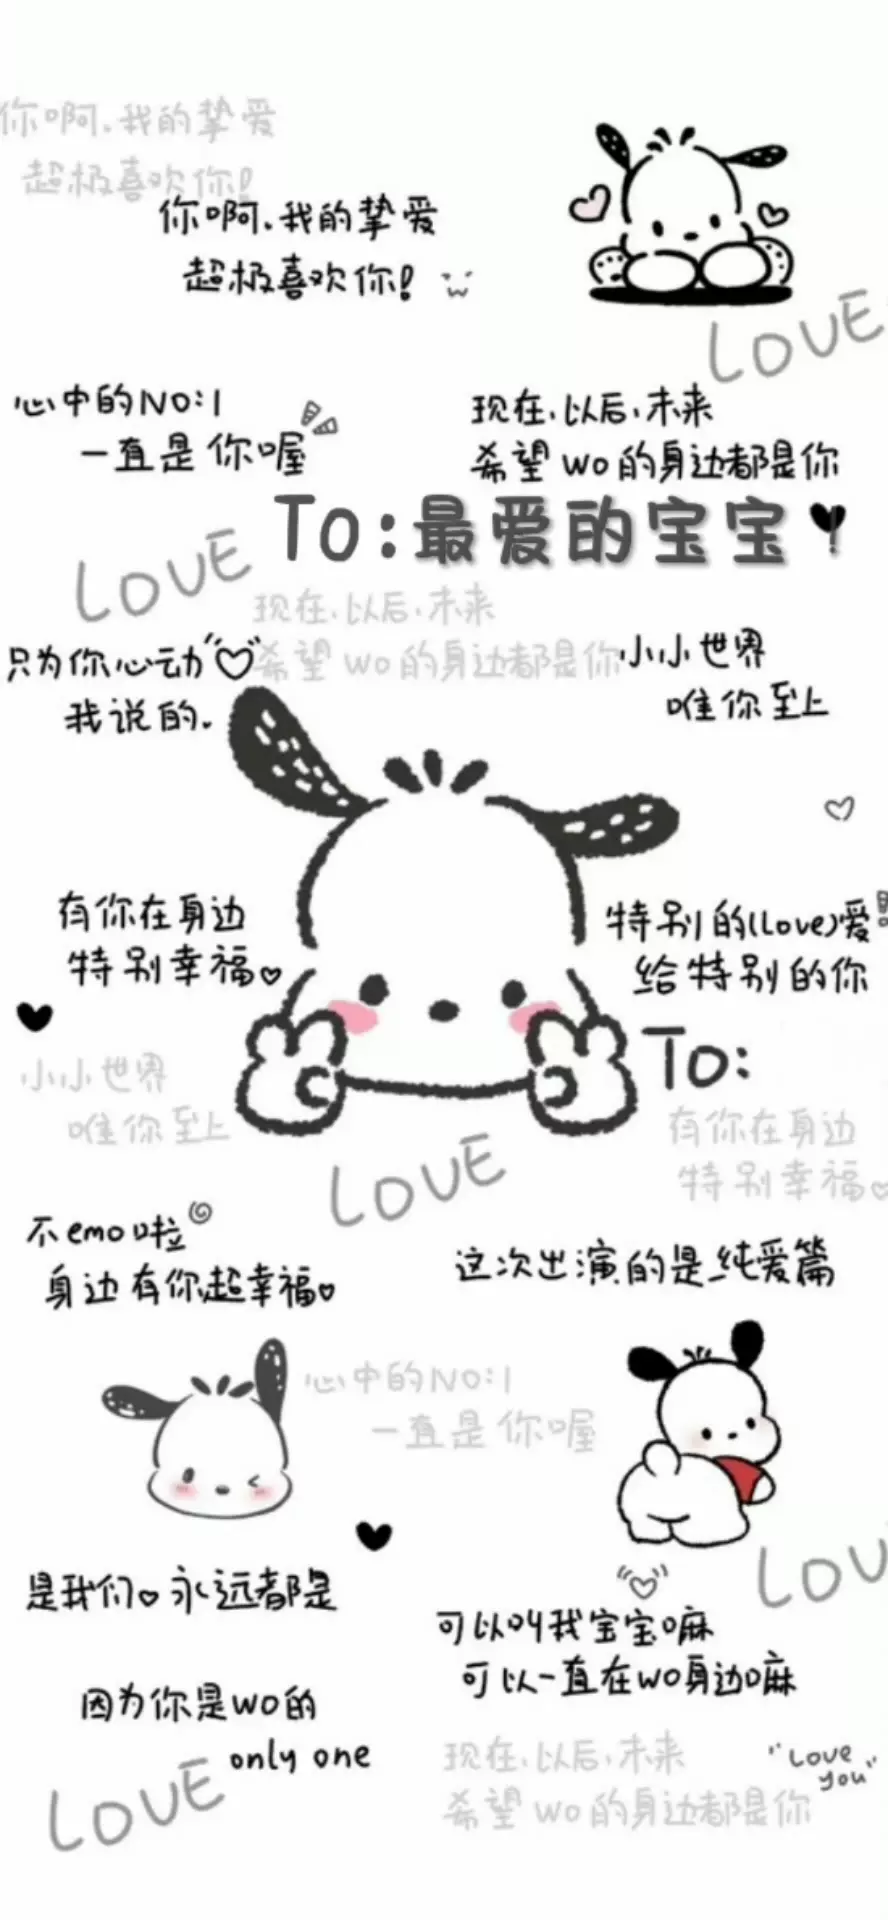 你啊.我的挚爱
超极喜欢你!
你啊.我的挚爱
超极喜欢你!
LOVE
心中的NO:1
一直是你喔
现在,以后,未来
希望wo的身边都是你
To:最爱的宝宝!
LOVE
现在,以后,未来
希望wo的身边都是你
只为你心动
我说的.
小小世界
唯你至上
有你在身边
特别幸福
特别的(love)爱
给特别的你
To:
小小世界
唯你至上
有你在身边
特别幸福
LOVE
不emo啦
身边有你超幸福
这次出演的是_纯爱篇
心中的NO:1
一直是你喔
LOVE
是我们 永远都是
可以叫我宝宝嘛
可以一直在wo身边嘛
因为你是wo的
only one
LOVE
现在,以后,未来
希望wo的身边都是你
"Love
you"